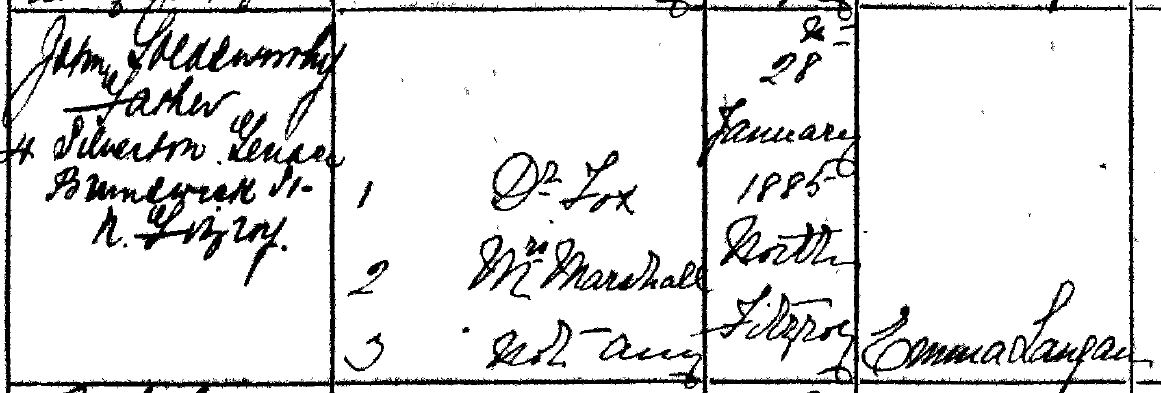 John Goldsworthy
Father
4 Silverton Terrace
Brunswick St
N. Fitzroy.
1 Dr Fox
2 Mrs Marshall
3 Not any
28
January
1885
North
Fitzroy
Emma Langan